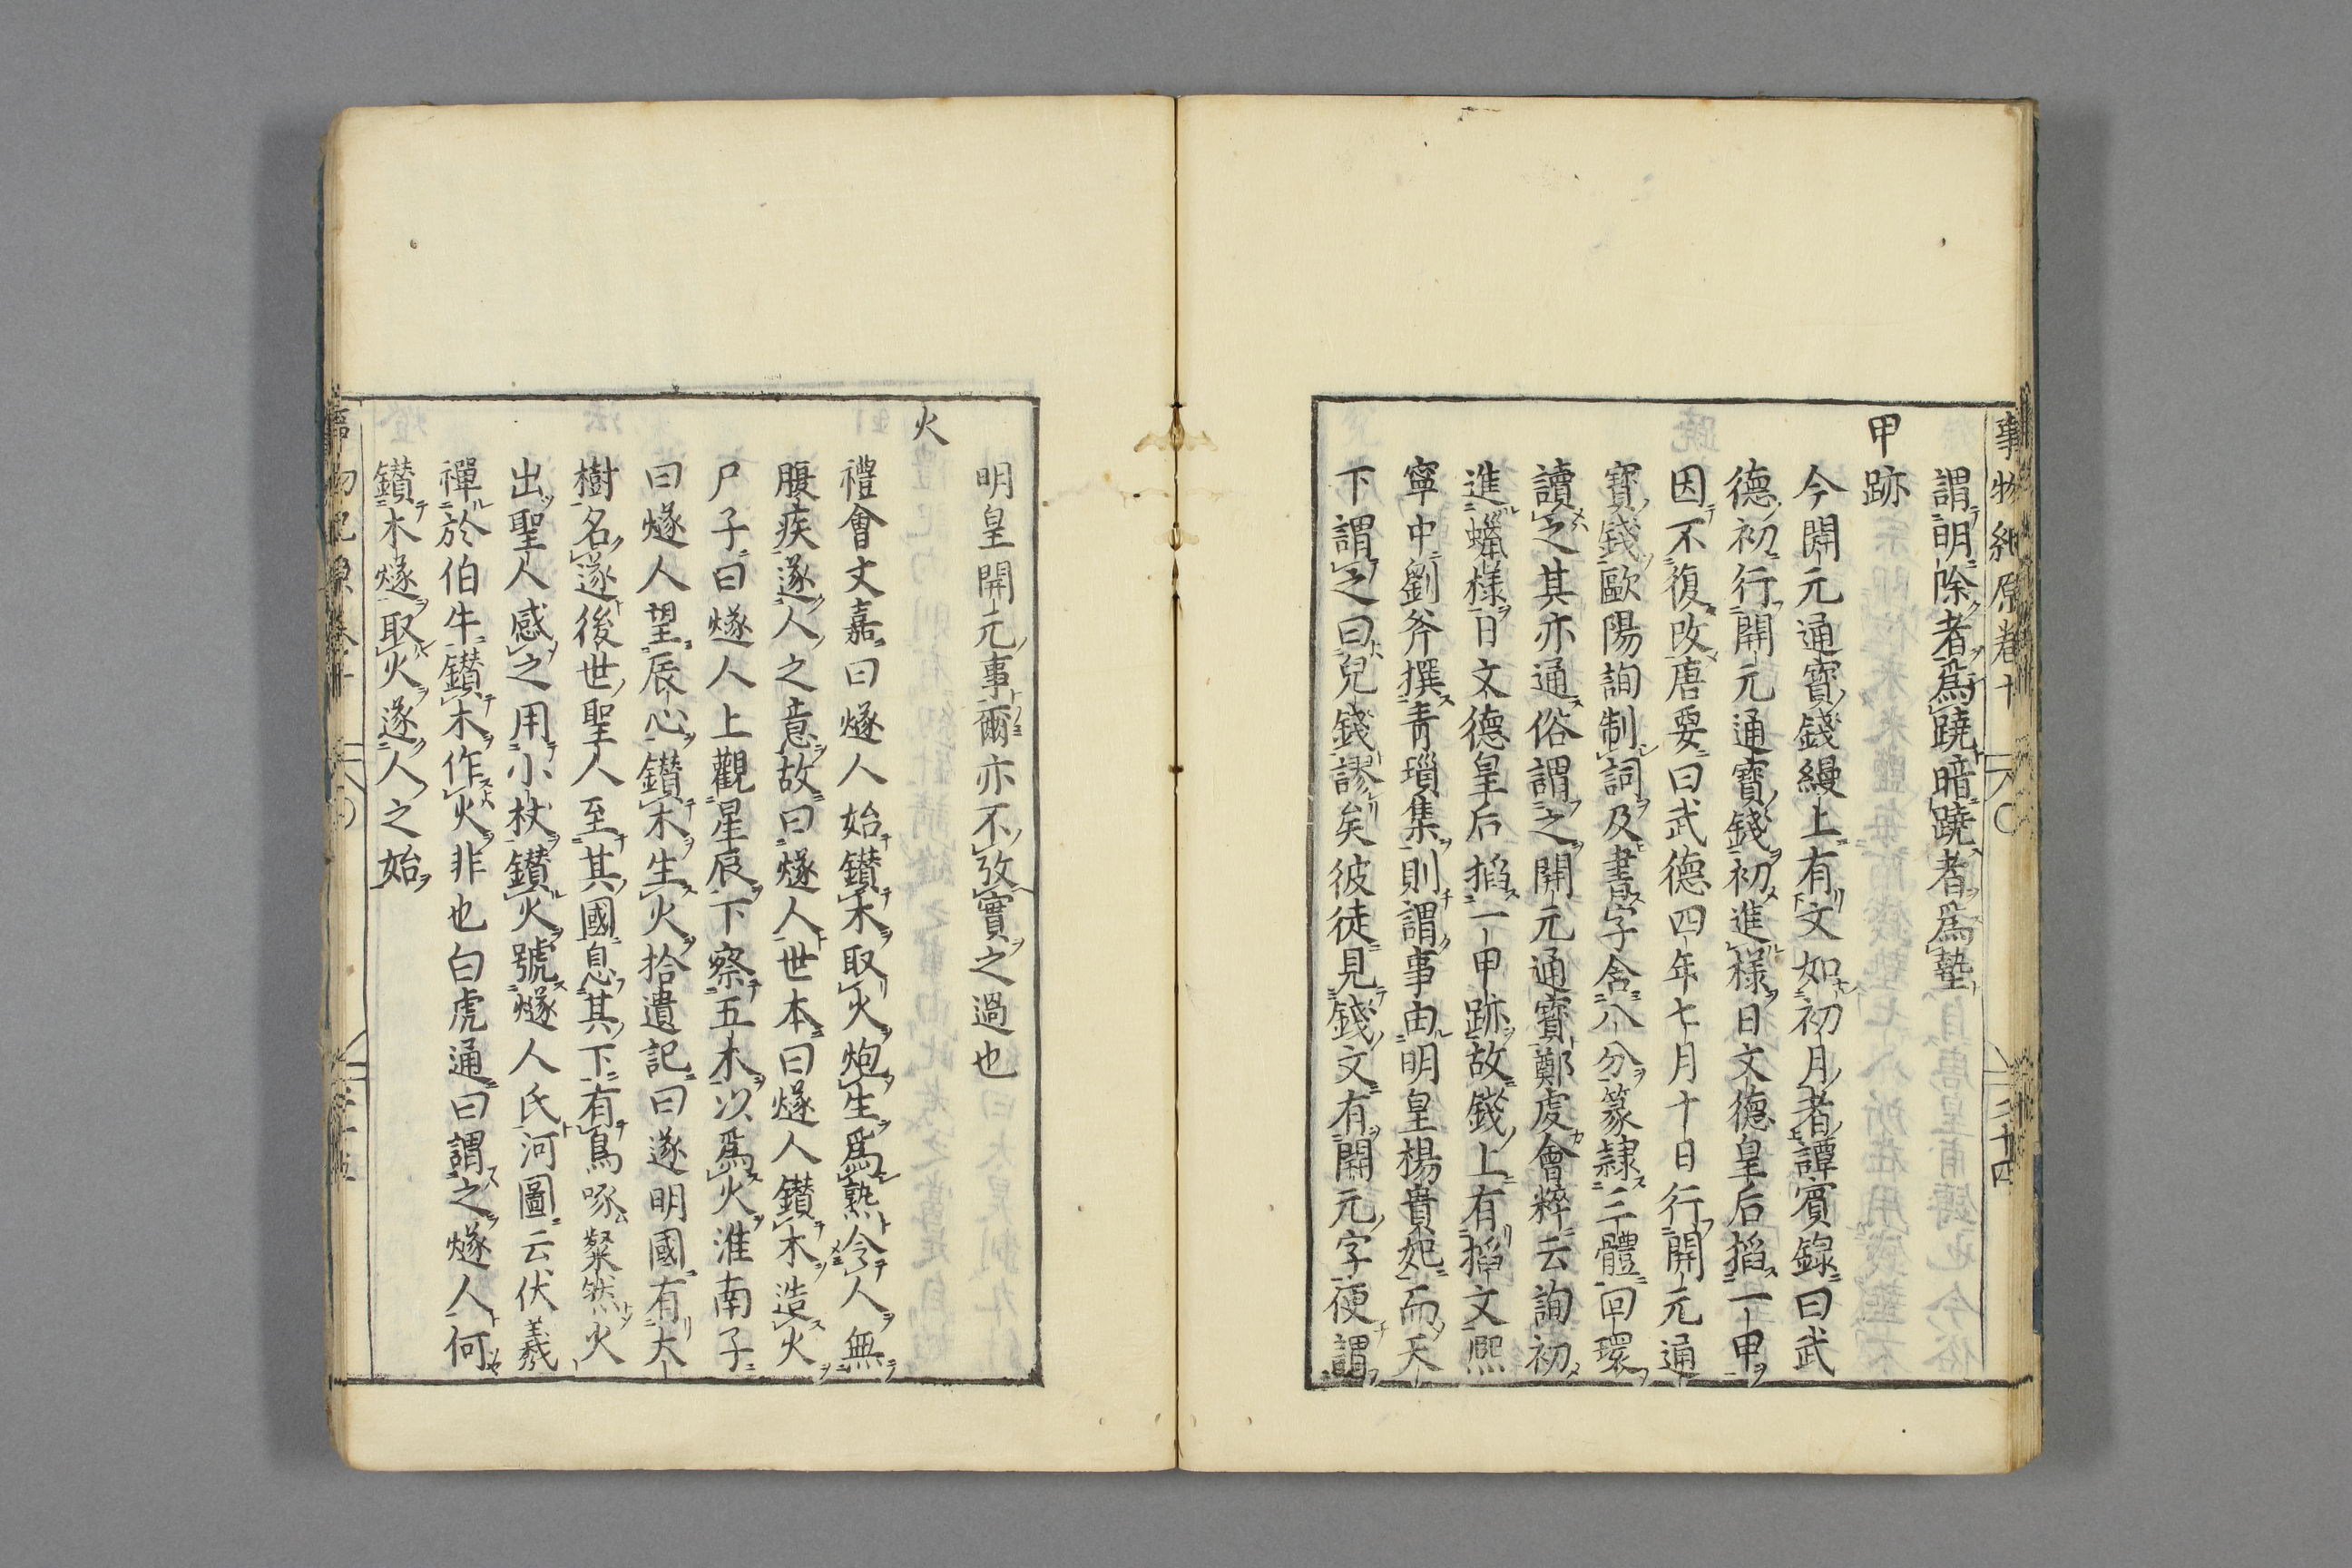 事物紀原卷十 二十四
謂明除者爲蹺暗蹺者爲墊
甲跡
今開元通寶錢縵上有文如初月者譚賓錄曰武
德初行開元通寶錢初進樣日文德皇后搯一甲
因不復改唐要曰武德四年七月十日行開元通
寶錢歐陽詢制詞及書字含八分篆隷三體回環
讀之其亦通俗謂之開元通寶鄭虔會粹云詢初
進蠟樣日文德皇后搯一甲跡故錢上有搯文熈
寧中劉斧撰青瑣集則謂事由明皇楊貴妃而天
下謂之曰兒錢謬矣彼徒見錢文有開元字便謂
明皇開元事爾亦不攷實之過也
火
禮會文嘉曰燧人始鑚木取火炮生爲熟令人無
腹疾遂人之意故曰燧人世本曰燧人鑚木造火
尸子曰燧人上觀星辰下察五木以爲火淮南子
曰燧人望辰心鑚木生火拾遺記曰遂明國有大
樹名遂後世聖人至其國息其下有鳥啄粲然火
出聖人感之用小枝鑚火號燧人氏河圖云伏羲
禪於伯牛鑚木作火非也白虎通曰謂之燧人何
鑚木燧取火遂人之始